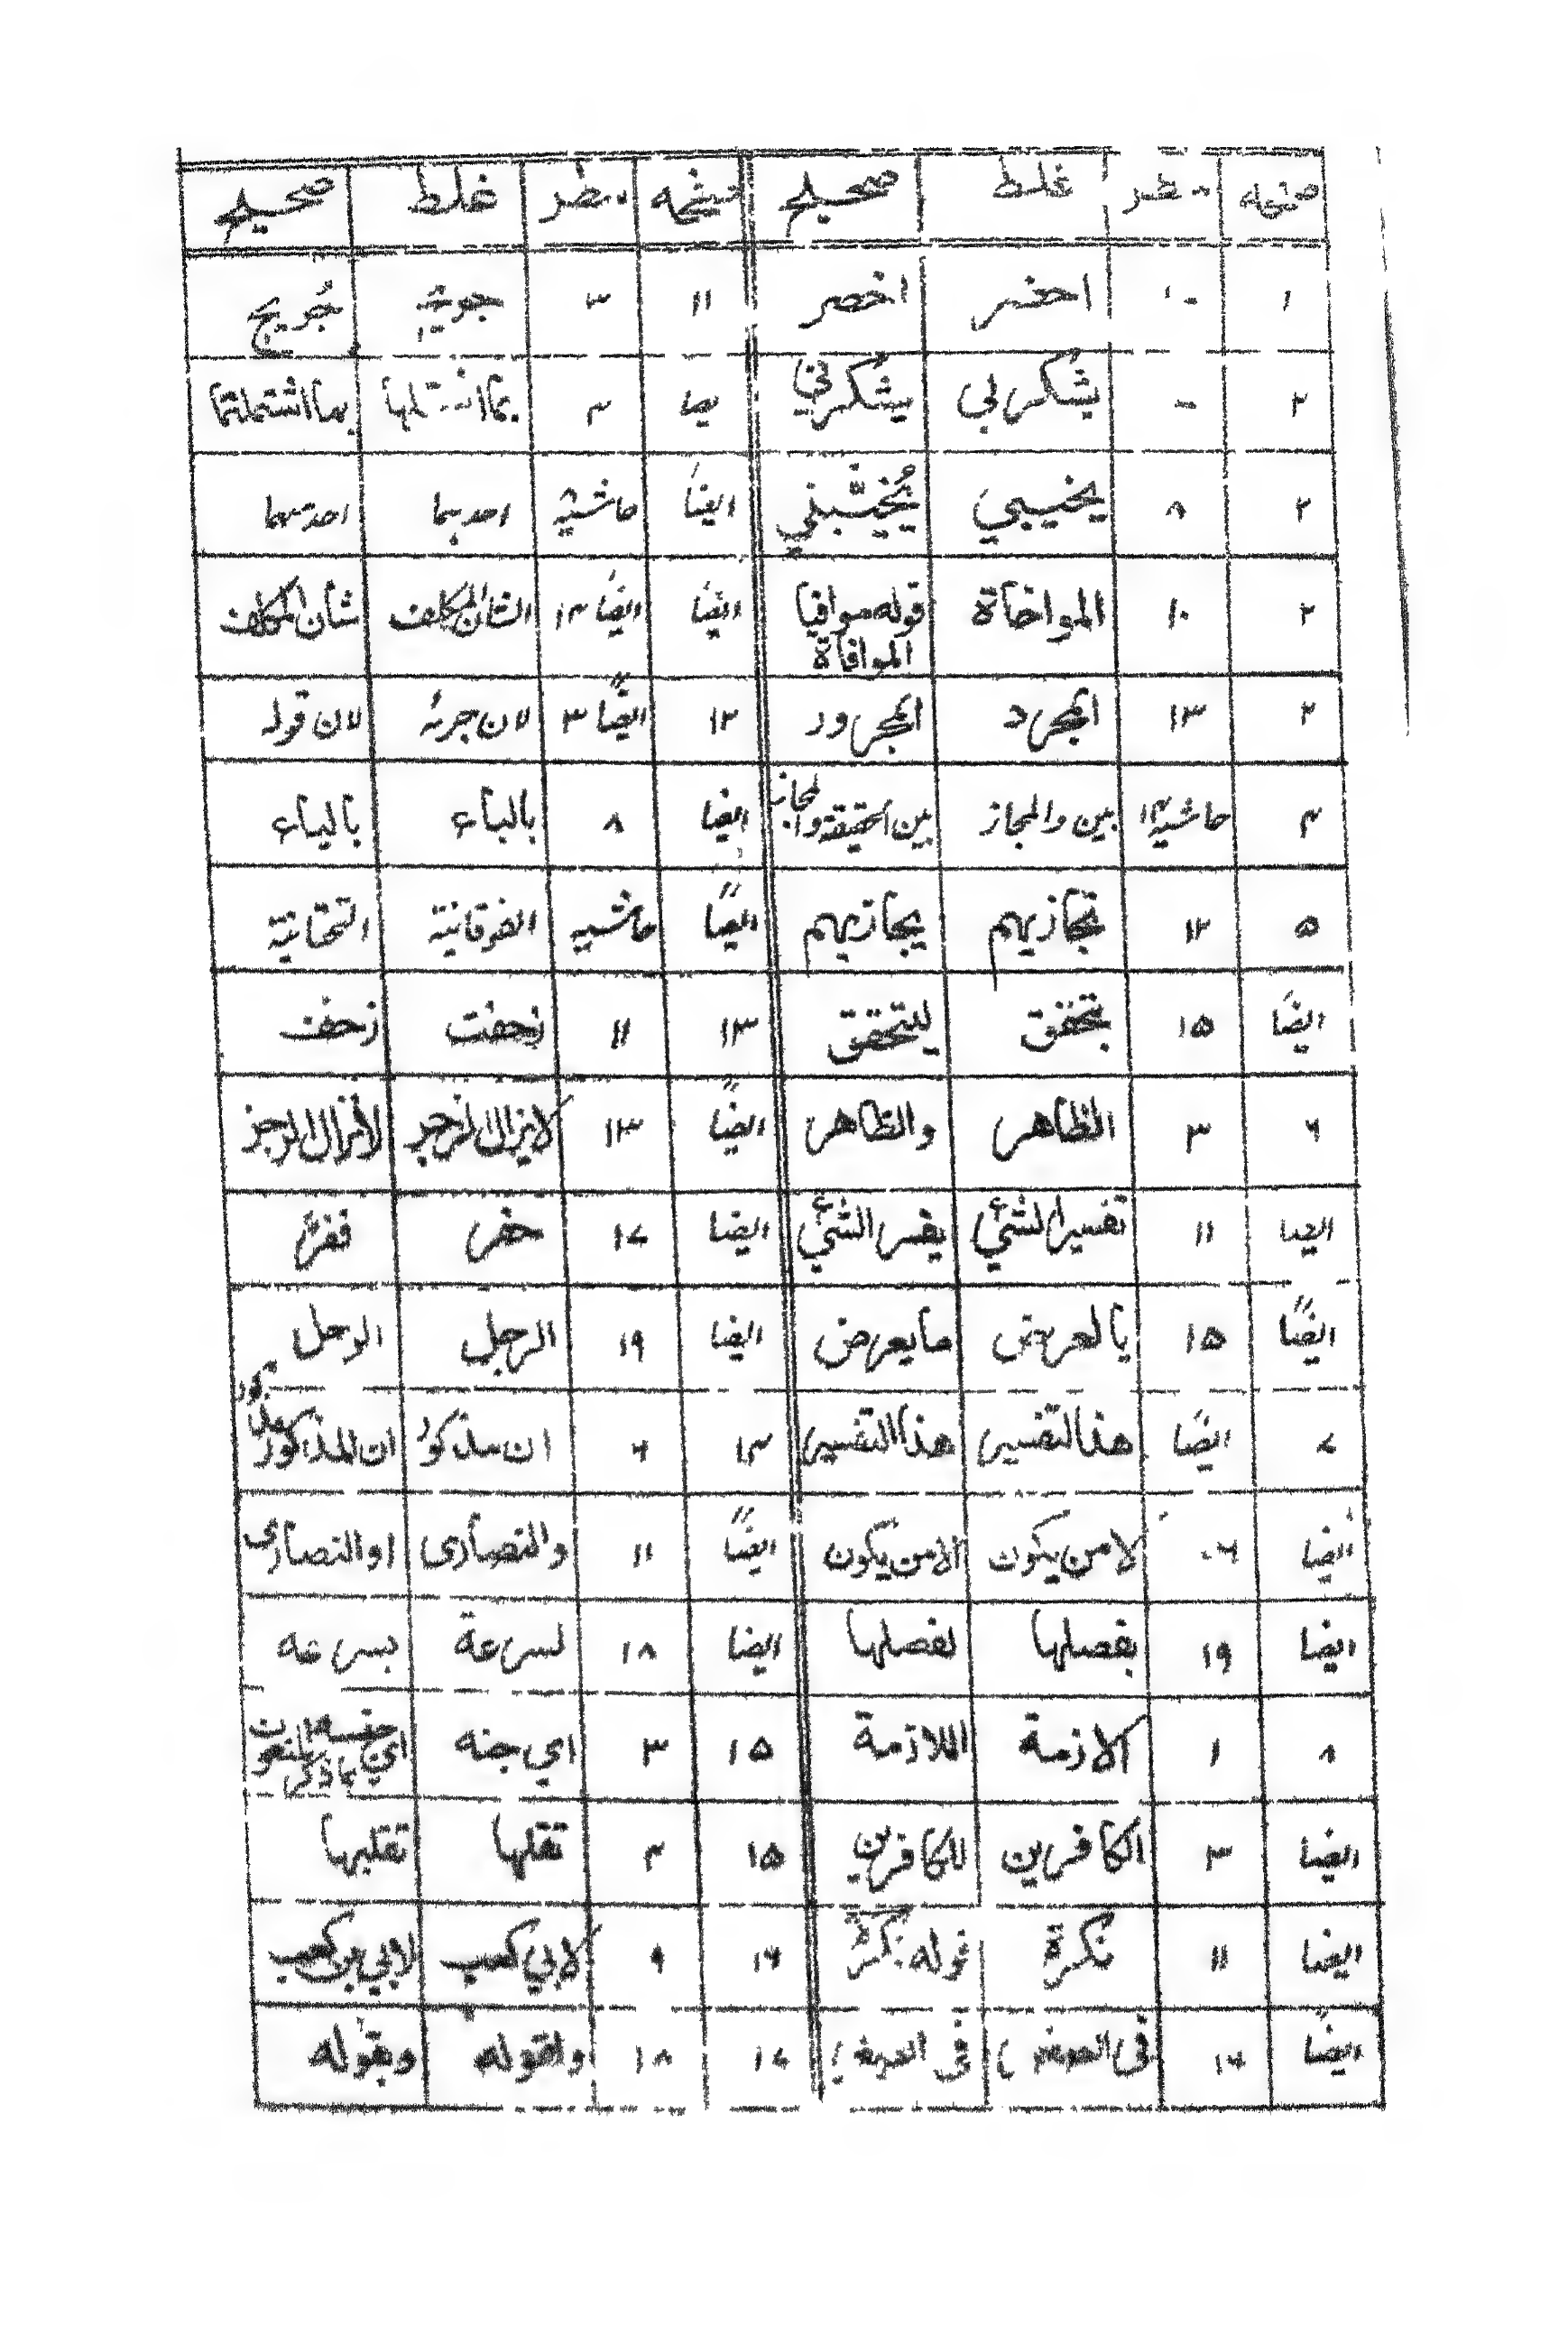 صفحه سطر غلط صحيح صفحه سطر غلط صحيح
١ احضر اخصر ١١ ٣ جُريج
٢ يشكر لي يشكرني ٤ بما اشتملتما
٢ ٨ يخيبي يُخيّبني ايضاً حاشيه احدهما
٢ ١٠ المواخاة قوله موافيا الموافاة ايضاً ايضاً ١٤ الشان المكلف شأن المكلف
٢ ١٣ المجرد المجرور ١٢ ايضاً ٣ لان جرئه لان قوله
٤ حاشيه ١٤ بين والمجاز بين الحقيقة والمجاز ايضا ٨ بالباء بالياء
٥ ١٢ تجازيهم يجازيهم ايضاً حاشيه الفوقانية التحتانية
ايضاً ١٥ بتحقق ليتحقق ١٣ ١١ زحفت زحف
٦ ٣ الظاهر والظاهر ايضاً ١٣ لانزال الرجز
ايضا ١١ تفسير الشيء يفسر الشيء ايضا ١٧ حفر
ايضاً ١٥ يالعرض مايعرض ايضا ١٩ الرجل الوحل
٧ ايضاً هذا لتفسير هذا التفسير ١٤ ٦ ان مذكور ان المذكور
ايضا لا من يكون الا من يكون ايضاً ١١ والنصارى او النصارى
ايضا ١٩ بفصلها لفصلها ايضا ١٨ لسرعة بسرعة
٨ ١ الازمة اللازمة ١٥ ٣ اي جنه
ايضا ٣ الكافرين للكافرين ١٥ ٤ تقلها تقلبها
ايضا ١١ نكرة قوله نكرة ١٦ ٩ لابي كعب لابي بن كعب
ايضاً ١٦ في في ١٧ ١٨ ولقوله وبقوله